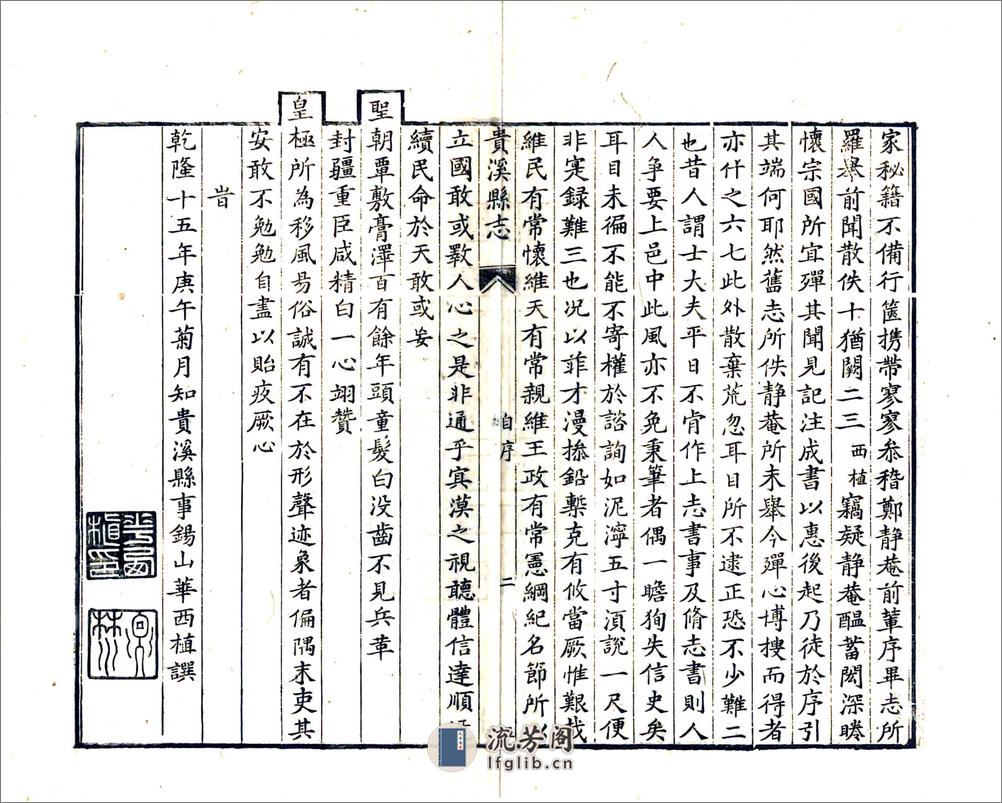 家秘籍不備行篋携帶寥寥叅稽鄭静菴前輩序畢志所
羅舉前聞散佚十猶闕二三西植竊疑静菴醖蓄閎深睠
懷宗國所宜殫其聞見記注成書以惠後起乃徒於序引
其端何耶然舊志所佚静菴所未舉今殫心博搜而得者
亦什之六七此外散棄荒忽耳目所不逮正恐不少難二
也昔人謂士大夫平日不肯作上志書事及脩志書則人
人爭要上邑中此風亦不免秉筆者偶一瞻狥失信史矣
耳目未徧不能不寄權於諮詢如泥濘五寸湏説一尺便
非寔録難三也况以菲才漫搽鉛槧克有攸當厥惟艱哉
維民有常懷維天有常親維王政有常憲綱紀名節所以
貴溪縣志
自序
二
立國敢或斁人心之是非通乎㝠漠之視聽體信達順
續民命於天敢或妄
聖朝覃敷膏澤百有餘年頭童髮白没齒不見兵革
封疆重臣咸精白一心翊贊
皇極所為移風昜俗誠有不在於形聲迹象者偏隅末吏其
安敢不勉勉自盡以貽疚厥心
旹
乾隆十五年庚午菊月知貴溪縣事錫山華西植譔
華西植印
流芳阁
lfglib.cn